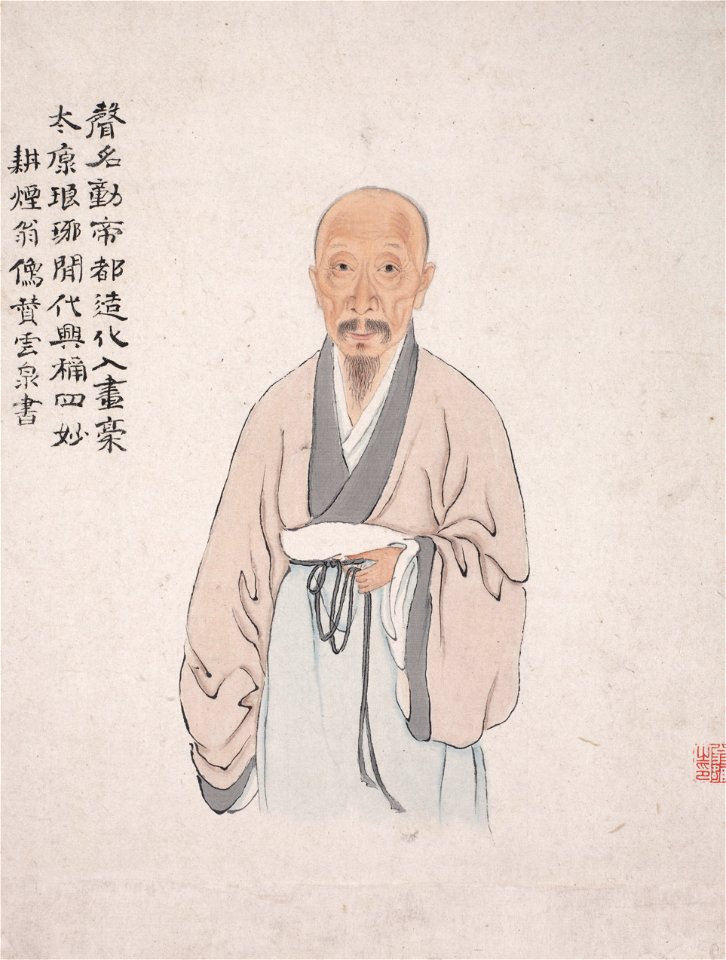 聲名動帝都造化入畫稾
太原琅琊間代興稱四妙
耕煙翁像贊雲泉書